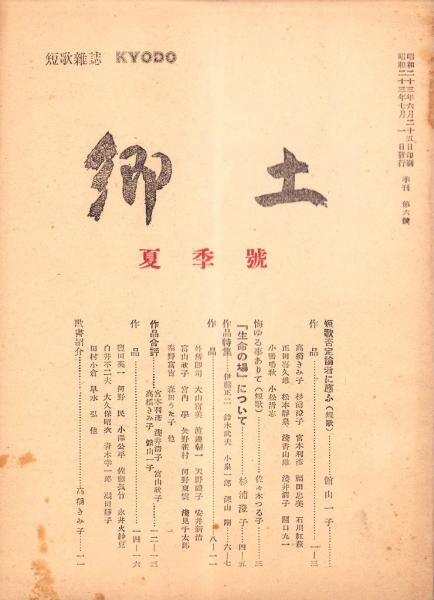 短歌雜誌 KYODO
昭和二十三年六月二十五日印刷
昭和二十三年七月一日發行 季刊 第六號
郷土
夏季號
短歌否定論者に應ふ(短歌)……館山一子…
作品……一—三
高橋きみ子 杉浦澄子 宮本利彦 福田忠美 石川紅萩
正田喜久雄 松本靜泉 淺香山雄 淺井錆子 關口丸一
小鴨鳴秋 小松清志
悔ゆる事ありて(短歌)……佐々木つる子…三
『生命の場』について……杉浦澄子…四—五
作品特集……伊藤正二 鈴木武夫 小泉一郎 深山剛…六—七
作品……八—一一
外所郎司 大山富美 渡邊朝一 天野禮子 安井新治
富山欣子 宮内學 矢野雅村 河野東雲 淺見千太郎
秦野富吉 森田うた子 他
作品合評……宮本利彦 淺井錆子 富山欣子 高橋きみ子 館山一子…一二—一三
作品……一四—一六
窪田英一 河野民 小澤公平 佐藤眞竹 永井火紗夏
白井不二夫 大久保昭次 青木幸一郎 福田靜子
田村小倉 早水弘 他
歌書紹介……高橋きみ子…一一